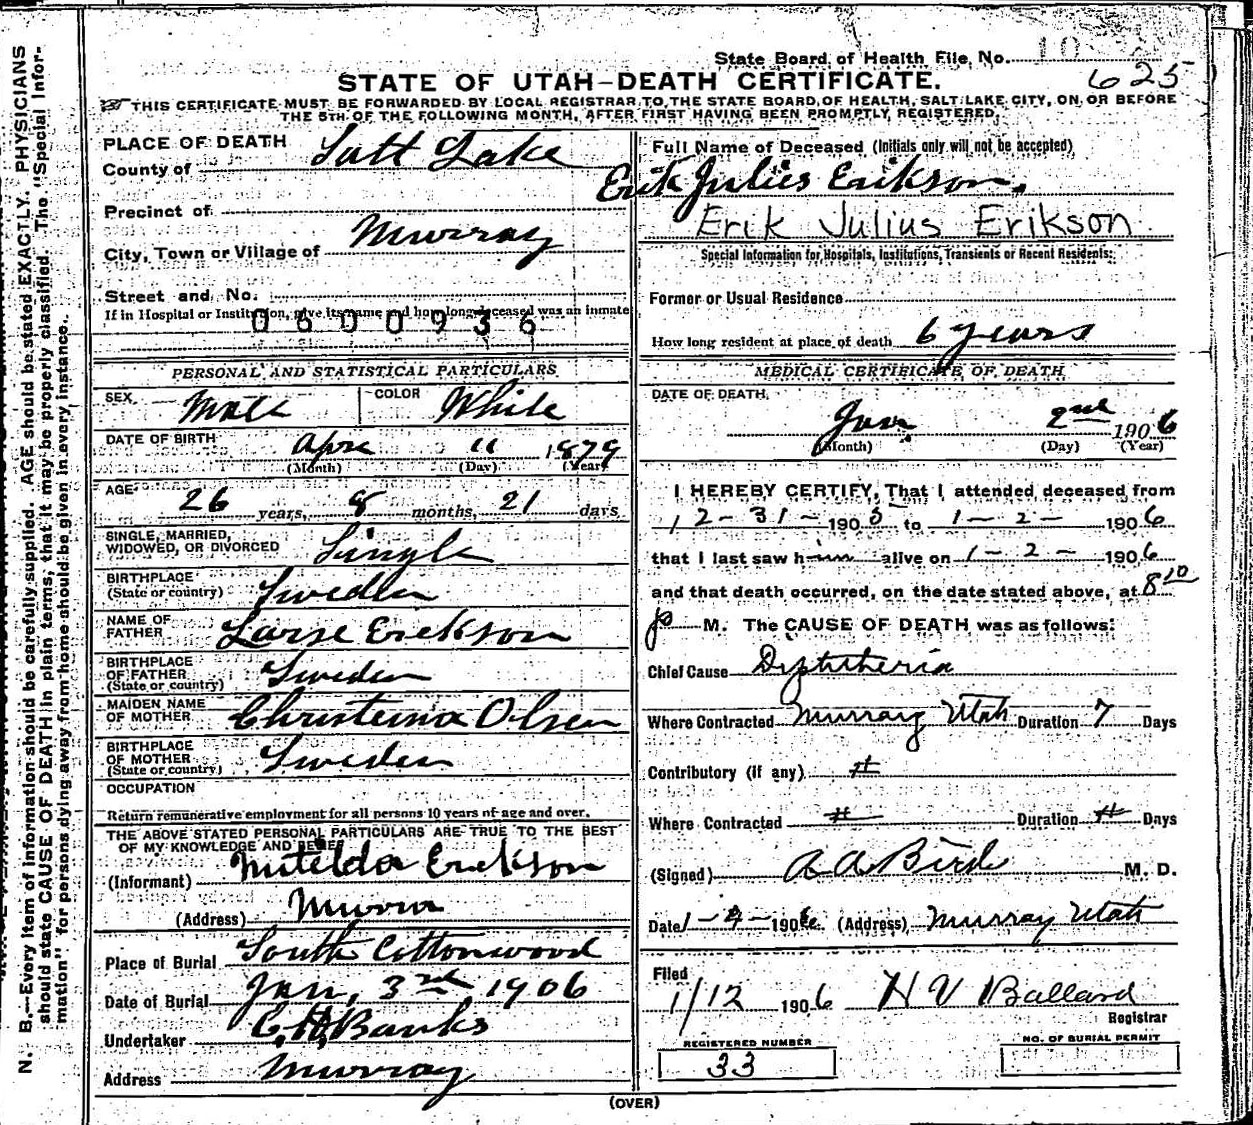 State Board of Health File No.
625
STATE OF UTAH—DEATH CERTIFICATE.
THIS CERTIFICATE MUST BE FORWARDED BY LOCAL REGISTRAR TO THE STATE BOARD OF HEALTH, SALT LAKE CITY, ON OR BEFORE
THE 5TH OF THE FOLLOWING MONTH, AFTER FIRST HAVING BEEN PROMPTLY REGISTERED.
PLACE OF DEATH
County of Salt Lake
Precinct of
City, Town or Village of Murray
Street and No.
If in Hospital or Institution, give its name and how long deceased was an inmate
0600936
PERSONAL AND STATISTICAL PARTICULARS
SEX Male COLOR White
DATE OF BIRTH Apr 11 1879
(Month) (Day) (Year)
AGE 26 years, 8 months, 21 days
SINGLE, MARRIED,
WIDOWED, OR DIVORCED Single
BIRTHPLACE
(State or country) Sweden
NAME OF
FATHER Larse Erickson
BIRTHPLACE
OF FATHER
(State or country) Sweden
MAIDEN NAME
OF MOTHER Christeina Olsen
BIRTHPLACE
OF MOTHER
(State or country) Sweden
OCCUPATION
Return remunerative employment for all persons 10 years of age and over.
THE ABOVE STATED PERSONAL PARTICULARS ARE TRUE TO THE BEST
OF MY KNOWLEDGE AND BELIEF
(Informant) Mitilda Erickson
(Address)
Place of Burial South Cottonwood
Date of Burial Jan, 3rd 1906
Undertaker Banks
Address Murray
Full Name of Deceased (Initials only will not be accepted)
Erik Julius Erikson.
Erik Julius Erikson
Special Information for Hospitals, Institutions, Transients or Recent Residents:
Former or Usual Residence
How long resident at place of death 6 years
MEDICAL CERTIFICATE OF DEATH
DATE OF DEATH
Jan. 2nd 1906
(Month) (Day) (Year)
I HEREBY CERTIFY, That I attended deceased from
12-31-1905 to 1-2-1906
that I last saw him alive on 1-2-1906
and that death occurred, on the date stated above, at 8 10
p M. The CAUSE OF DEATH was as follows:
Chief Cause Diptheria
Where Contracted Murray Utah Duration 7 Days
Contributory (if any) #
Where Contracted # Duration # Days
(Signed) A A Bird M. D.
Date 1-4-1906 (Address) Murray Utah
Filed
1/12 1906 H V Ballard
Registrar
REGISTERED NUMBER
33
NO. OF BURIAL PERMIT
(OVER)
N. B.—Every item of information should be carefully supplied. AGE should be stated EXACTLY. PHYSICIANS
should state CAUSE OF DEATH in plain terms, that it may be properly classified. The "Special Infor-
mation" for persons dying away from home should be given in every instance.